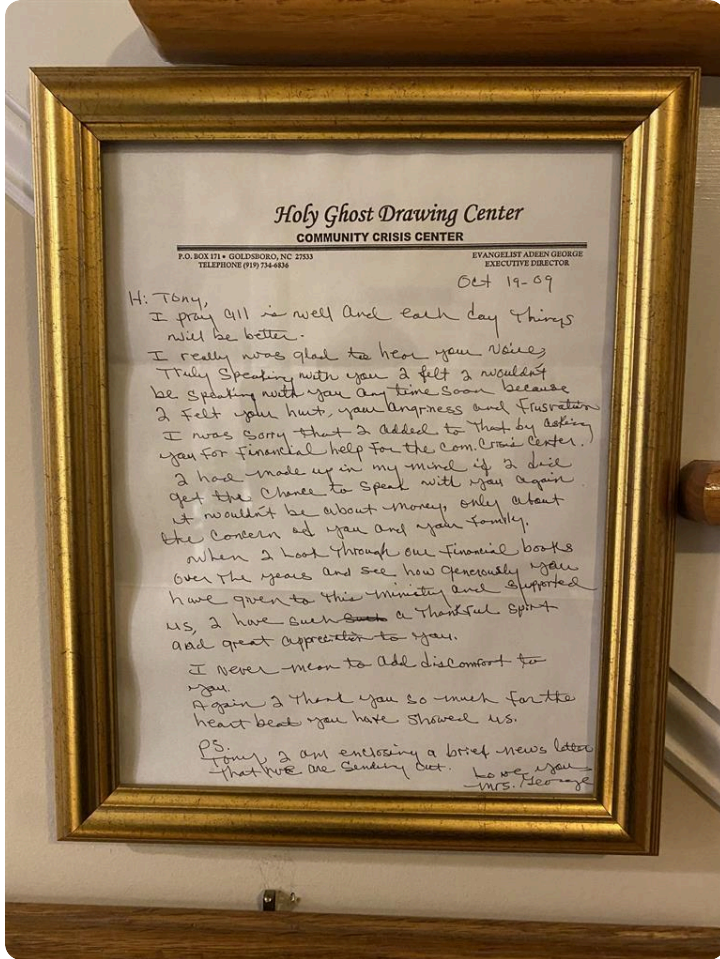 Holy Ghost Drawing Center
COMMUNITY CRISIS CENTER
P.O. BOX 171 • GOLDSBORO, NC 27533
TELEPHONE (919) 734-6836
EVANGELIST ADEEN GEORGE
EXECUTIVE DIRECTOR
Oct 19-09
Hi Tony,
I pray all is well and each day Things
will be better.
I really was glad to hear your voice,
Truly Speaking with you I felt I wouldn't
be speaking with you any time soon because
I felt your hurt, your angriness and Frustration
I was sorry that I added to That by asking
you For Financial help For the Com. Crisis Center.
I had made up in my mind if I did
get the Chance to Speak with you again
it wouldn't be about money, only about
the Concern of you and your Family.
When I look Through our Financial books
over The years and see how generously you
have given to This Ministry and supported
us, I have such such a Thankful Spirit
and great appreciation to you.
I never mean to add discomfort to
you.
Again I Thank you so much for the
heart beat you have showed us.
PS.
Tony, I am enclosing a brief news letter
That we are Sending out.
Love you
Mrs. George